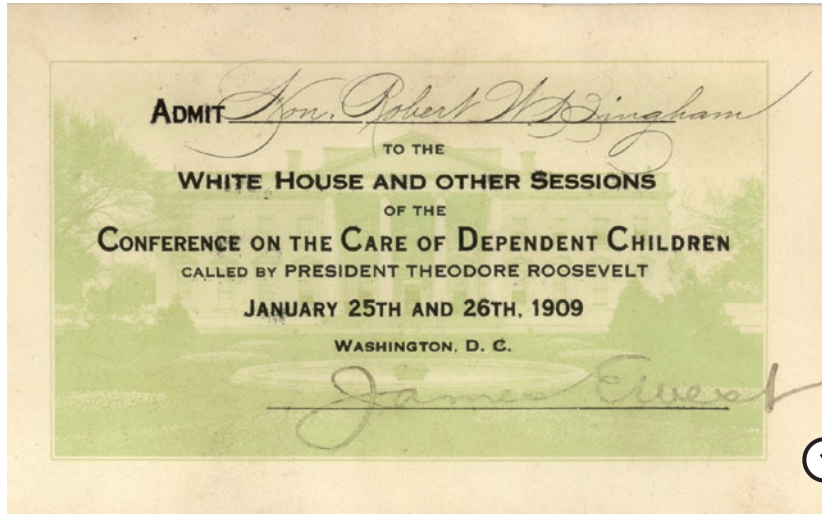 ADMIT Hon. Robert W Bingham
TO THE
WHITE HOUSE AND OTHER SESSIONS
OF THE
CONFERENCE ON THE CARE OF DEPENDENT CHILDREN
CALLED BY PRESIDENT THEODORE ROOSEVELT
JANUARY 25TH AND 26TH, 1909
WASHINGTON, D. C.
James E West